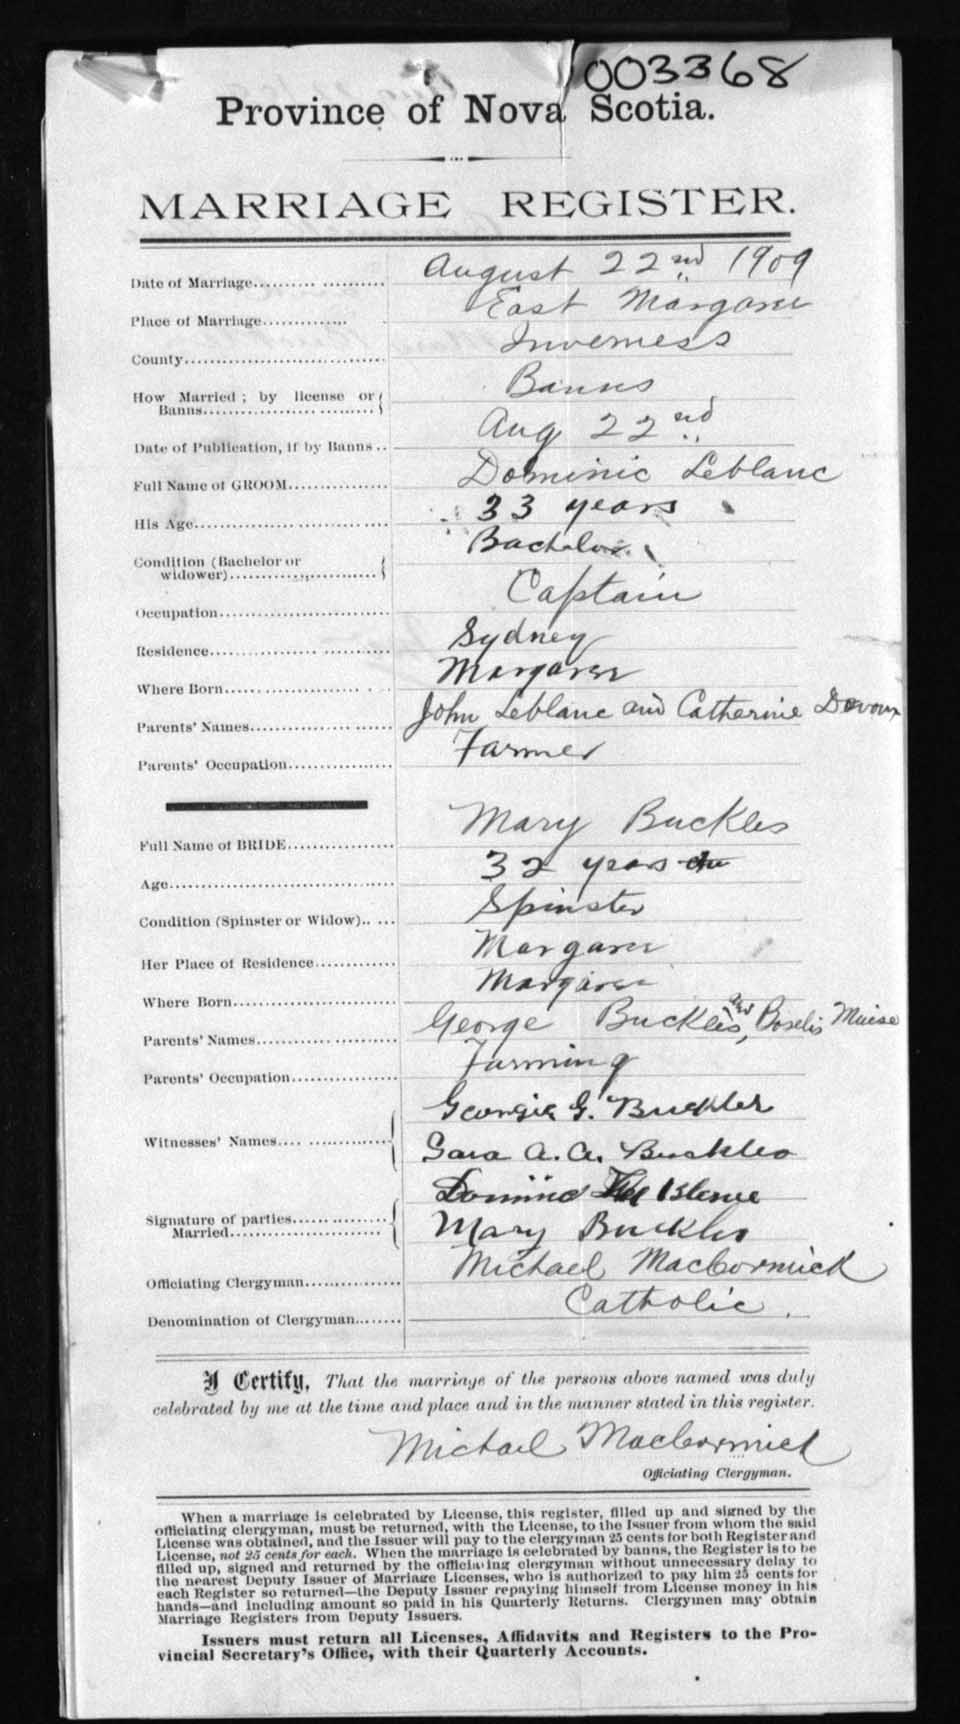 003368
Province of Nova Scotia.
MARRIAGE REGISTER.
Date of Marriage August 22nd 1909
Place of Marriage East Margaree
County Inverness
How Married; by license or
Banns Banns
Date of Publication, if by Banns Aug 22nd
Full Name of GROOM Dominic Leblanc
His Age 33 years
Condition (Bachelor or
widower) Bachelor
Occupation Captain
Residence Sydney
Where Born Margaree
Parents' Names John Leblanc and Catherine
Parents' Occupation Farmer
Full Name of BRIDE Mary Buckles
Age 32 years
Condition (Spinster or Widow) Spinster
Her Place of Residence Margaree
Where Born Margaree
Parents' Names George Buckles, and Muise
Parents' Occupation Farming
Witnesses' Names Georgie G. Buckles
Sara A. A. Buckles
Signature of parties
Married Mary Buckles
Officiating Clergyman Michael MacCormick
Denomination of Clergyman Catholic.
I Certify, That the marriage of the persons above named was duly
celebrated by me at the time and place and in the manner stated in this register.
Michael MacCormick
Officiating Clergyman.
When a marriage is celebrated by License, this register, filled up and signed by the
officiating clergyman, must be returned, with the License, to the Issuer from whom the said
License was obtained, and the Issuer will pay to the clergyman 25 cents for both Register and
License, not 25 cents for each. When the marriage is celebrated by banns, the Register is to be
filled up, signed and returned by the officiating clergyman without unnecessary delay to
the nearest Deputy Issuer of Marriage Licenses, who is authorized to pay him 25 cents for
each Register so returned—the Deputy Issuer repaying himself from License money in his
hands—and including amount so paid in his Quarterly Returns. Clergymen may obtain
Marriage Registers from Deputy Issuers.
Issuers must return all Licenses, Affidavits and Registers to the Pro-
vincial Secretary's Office, with their Quarterly Accounts.